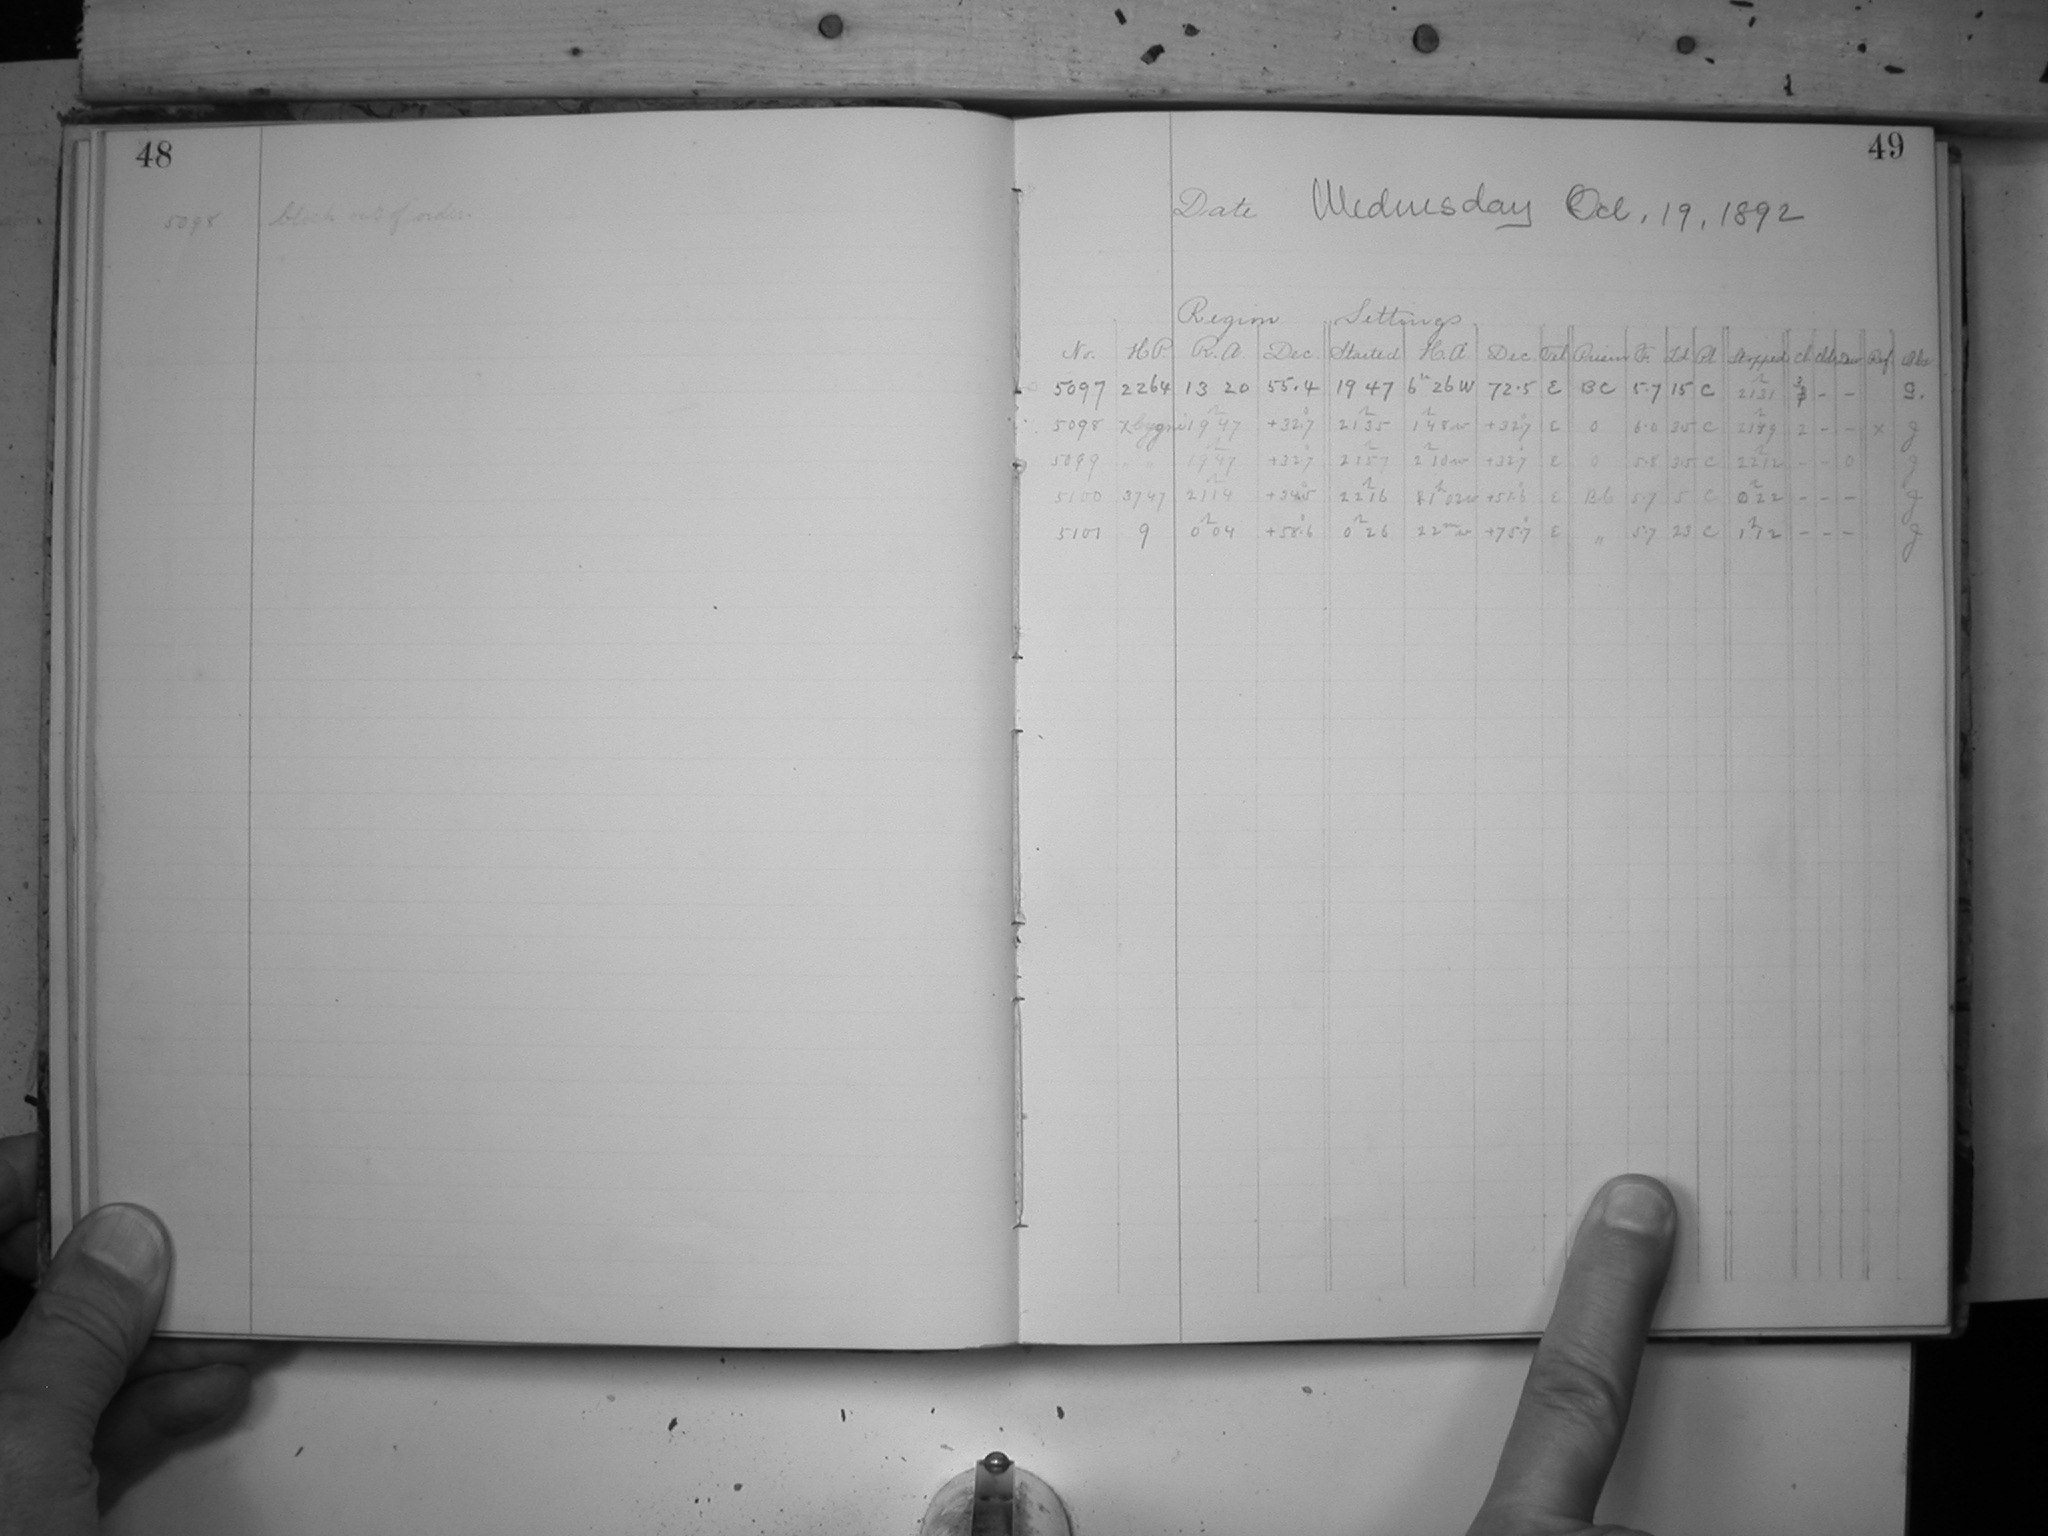 48
5098 clock out of order
49
Date Wednesday Oct. 19, 1892
Region Settings
No. H.P. R.A. Dec. Started H.A. Dec. Tel Prism F. Ld Pl Stopped Cl Ref. Obs
5097 2264 13 20 55.4 19 47 6h 26 W 72.5 E BC 5.7 15 C 21h31 - - g.
5098 χ Cygni 19h47 +32°.7 21h35 1h48w +32°.7 E 0 6.0 35 C 21h49 2 - - x g
5099 " " 19h47 +32°.7 21h57 2h10w +32°.7 E 0 5.8 35 C 22h12 - - 0 g
5100 3747 21h14 +34°.5 22h16 1h02w +51°.6 E BC 5.7 5 C 0h22 - - - g
5101 9 0h04 +58°.6 0h26 22m w +75°.7 E " 5.7 23 C 1h12 - - - g